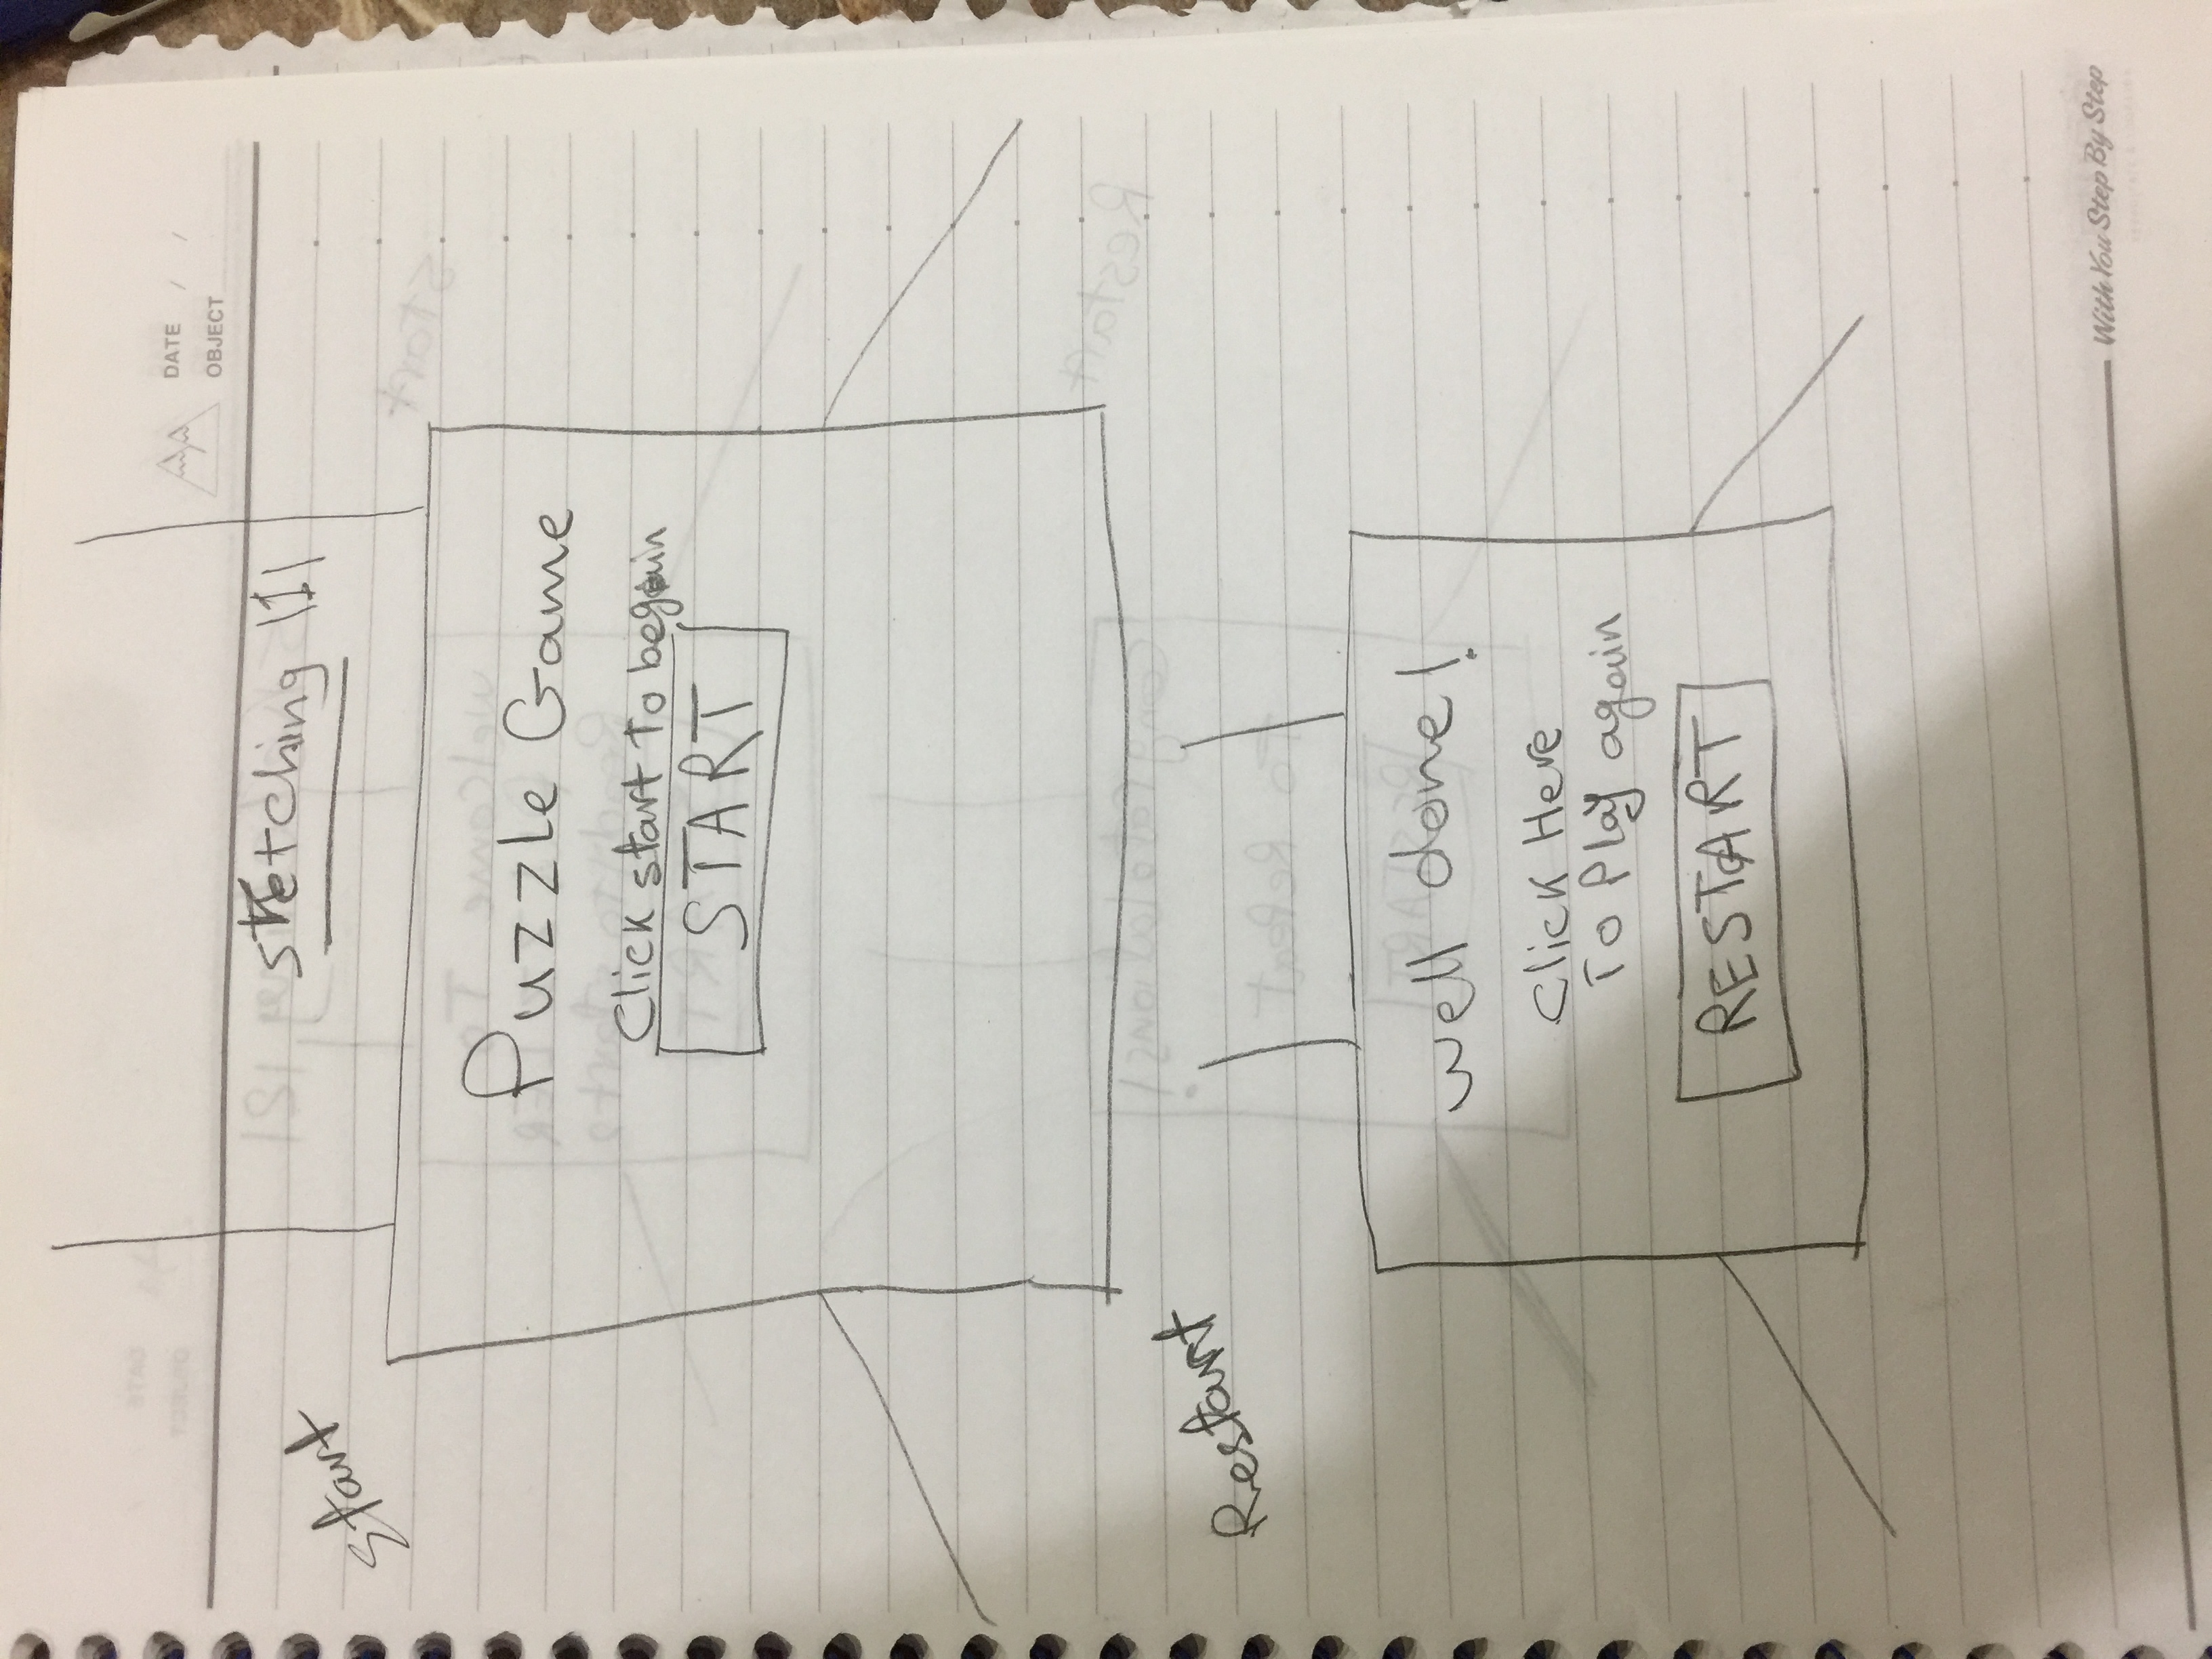 DATE / /
OBJECT
Sketching |1|
Start
Puzzle Game
Click start To begain
START
Restart
well done!
Click Here
To Play again
RESTART
With You Step By Step